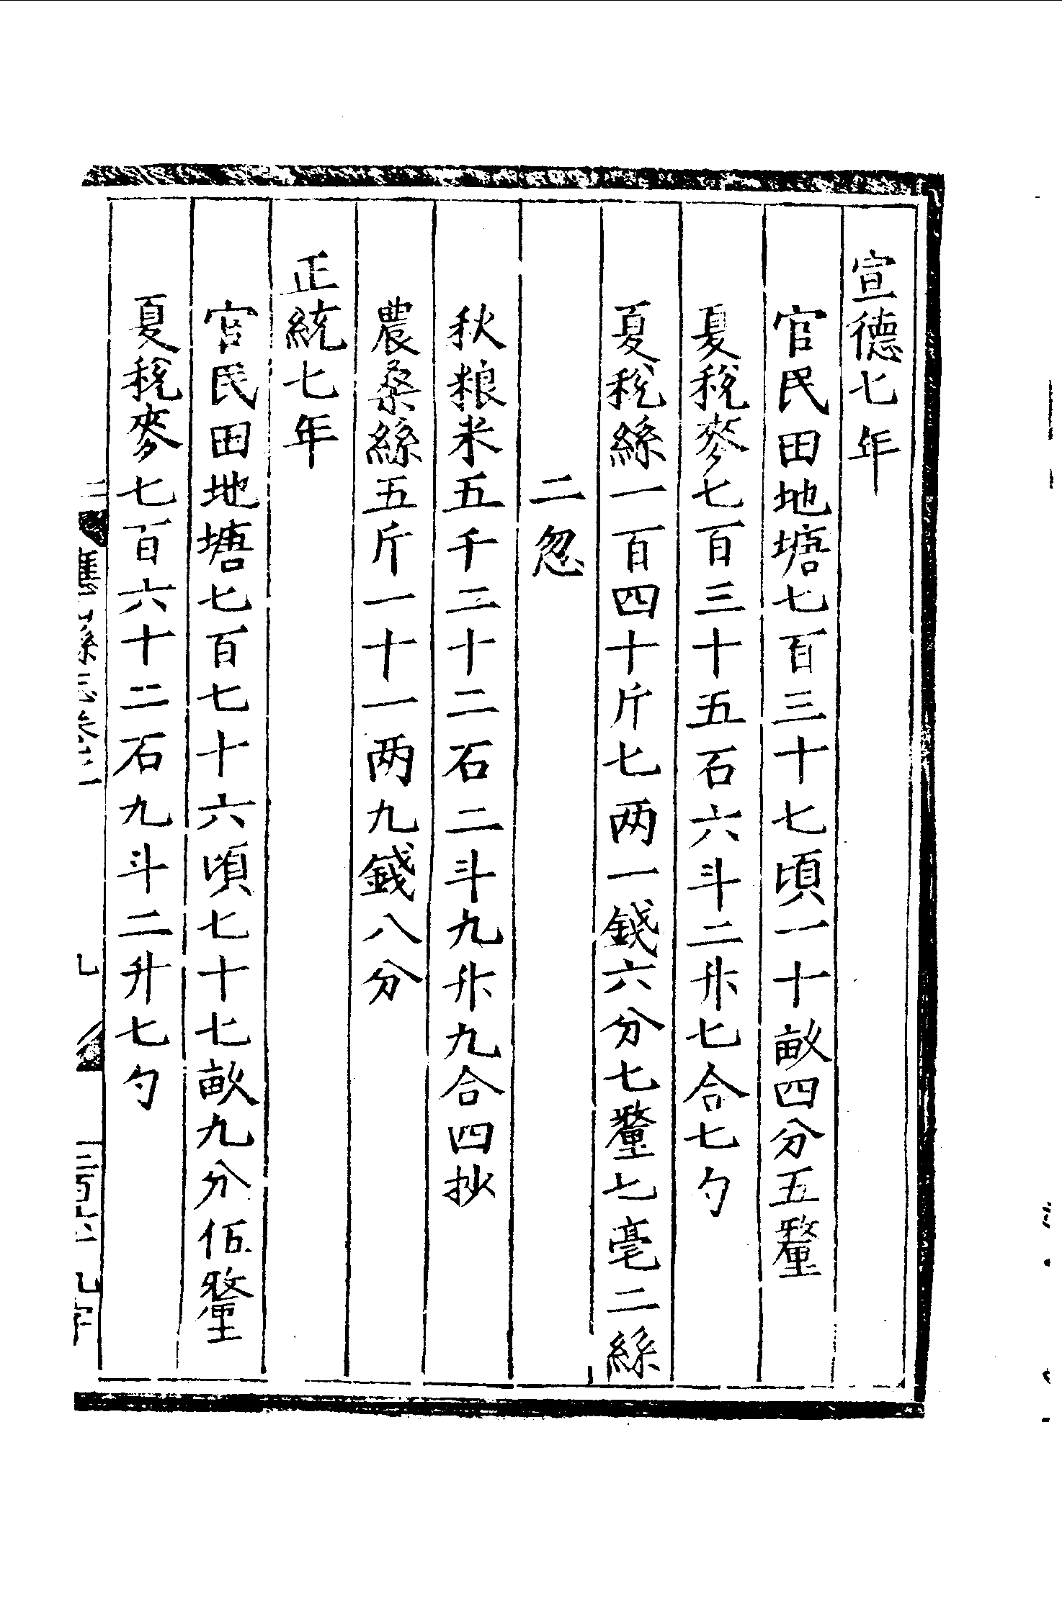 宣德七年
官民田地塘七百三十七頃一十畝四分五釐
夏稅麥七百三十五石六斗二升七合七勺
夏稅絲一百四十斤七两一錢六分七釐七毫二絲
二忽
秋粮米五千二十二石二斗九升九合四抄
農桑絲五斤一十一两九錢八分
正統七年
官民田地塘七百七十六頃七十七畝九分伍釐
夏稅麥七百六十二石九斗二升七勺
九